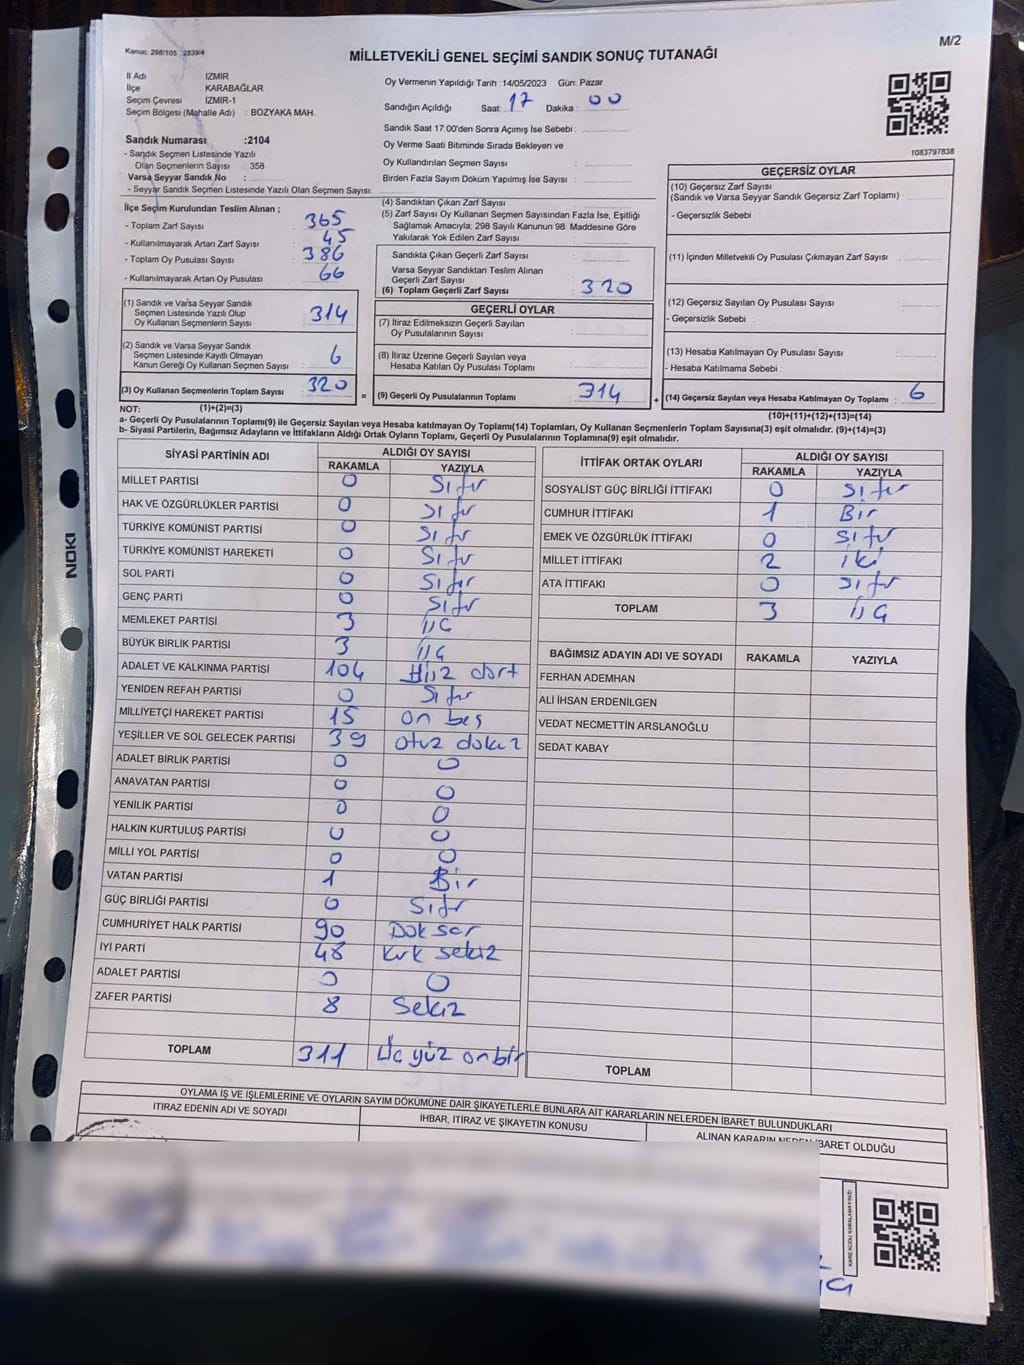 Kanun: 298/105 2839/4
M/2
MİLLETVEKİLİ GENEL SEÇİMİ SANDIK SONUÇ TUTANAĞI
İl Adı İZMİR
İlçe KARABAĞLAR
Seçim Çevresi : İZMİR-1
Seçim Bölgesi (Mahalle Adı) : BOZYAKA MAH.
Sandık Numarası :2104
- Sandık Seçmen Listesinde Yazılı
Olan Seçmenlerin Sayısı : 358
Varsa Seyyar Sandık No :
- Seyyar Sandık Seçmen Listesinde Yazılı Olan Seçmen Sayısı:
Oy Vermenin Yapıldığı Tarih : 14/05/2023 Gün: Pazar
Sandığın Açıldığı Saat: 17 Dakika : 00
Sandık Saat 17:00'den Sonra Açımış İse Sebebi :
Oy Verme Saati Bitiminde Sırada Bekleyen ve
Oy Kullandırılan Seçmen Sayısı :
Birden Fazla Sayım Döküm Yapılmış İse Sayısı :
1083797838
İlçe Seçim Kurulundan Teslim Alınan ;
- Toplam Zarf Sayısı : 365
- Kullanılmayarak Artan Zarf Sayısı : 45
- Toplam Oy Pusulası Sayısı : 386
- Kullanılmayarak Artan Oy Pusulası : 66
(1) Sandık ve Varsa Seyyar Sandık
Seçmen Listesinde Yazılı Olup
Oy Kullanan Seçmenlerin Sayısı : 314
(2) Sandık ve Varsa Seyyar Sandık
Seçmen Listesinde Kayıtlı Olmayan
Kanun Gereği Oy Kullanan Seçmen Sayısı : 6
(3) Oy Kullanan Seçmenlerin Toplam Sayısı : 320
(4) Sandıktan Çıkan Zarf Sayısı :
(5) Zarf Sayısı Oy Kullanan Seçmen Sayısından Fazla İse, Eşitliği
Sağlamak Amacıyla; 298 Sayılı Kanunun 98. Maddesine Göre
Yakılarak Yok Edilen Zarf Sayısı :
Sandıkta Çıkan Geçerli Zarf Sayısı :
Varsa Seyyar Sandıktan Teslim Alınan
Geçerli Zarf Sayısı :
(6) Toplam Geçerli Zarf Sayısı : 320
GEÇERLİ OYLAR
(7) İtiraz Edilmeksizin Geçerli Sayılan
Oy Pusulalarının Sayısı :
(8) İtiraz Üzerine Geçerli Sayılan veya
Hesaba Katılan Oy Pusulası Toplamı :
= (9) Geçerli Oy Pusulalarının Toplamı : 314
GEÇERSİZ OYLAR
(10) Geçersiz Zarf Sayısı
(Sandık ve Varsa Seyyar Sandık Geçersiz Zarf Toplamı) :
- Geçersizlik Sebebi :
(11) İçinden Milletvekili Oy Pusulası Çıkmayan Zarf Sayısı :
(12) Geçersiz Sayılan Oy Pusulası Sayısı :
- Geçersizlik Sebebi :
(13) Hesaba Katılmayan Oy Pusulası Sayısı :
- Hesaba Katılmama Sebebi :
+ (14) Geçersiz Sayılan veya Hesaba Katılmayan Oy Toplamı : 6
NOT: (1)+(2)=(3) (10)+(11)+(12)+(13)=(14)
a- Geçerli Oy Pusulalarının Toplamı(9) ile Geçersiz Sayılan veya Hesaba katılmayan Oy Toplamı(14) Toplamları, Oy Kullanan Seçmenlerin Toplam Sayısına(3) eşit olmalıdır. (9)+(14)=(3)
b- Siyasi Partilerin, Bağımsız Adayların ve İttifakların Aldığı Ortak Oyların Toplamı, Geçerli Oy Pusulalarının Toplamına(9) eşit olmalıdır.
SİYASİ PARTİNİN ADI ALDIĞI OY SAYISI
RAKAMLA YAZIYLA
MİLLET PARTİSİ 0 Sıfır
HAK VE ÖZGÜRLÜKLER PARTİSİ 0 Sıfır
TÜRKİYE KOMÜNİST PARTİSİ 0 Sıfır
TÜRKİYE KOMÜNİST HAREKETİ 0 Sıfır
SOL PARTİ 0 Sıfır
GENÇ PARTİ 0 Sıfır
MEMLEKET PARTİSİ 3 üç
BÜYÜK BİRLİK PARTİSİ 3 üç
ADALET VE KALKINMA PARTİSİ 104 Yüz dört
YENİDEN REFAH PARTİSİ 0 Sıfır
MİLLİYETÇİ HAREKET PARTİSİ 15 on beş
YEŞİLLER VE SOL GELECEK PARTİSİ 39 otuz dokuz
ADALET BİRLİK PARTİSİ 0 0
ANAVATAN PARTİSİ 0 0
YENİLİK PARTİSİ 0 0
HALKIN KURTULUŞ PARTİSİ 0 0
MİLLİ YOL PARTİSİ 0 0
VATAN PARTİSİ 1 Bir
GÜÇ BİRLİĞİ PARTİSİ 0 Sıfır
CUMHURİYET HALK PARTİSİ 90 Doksan
İYİ PARTİ 48 Kırk sekiz
ADALET PARTİSİ 0 0
ZAFER PARTİSİ 8 Sekiz
TOPLAM 311 Üç yüz onbir
İTTİFAK ORTAK OYLARI ALDIĞI OY SAYISI
RAKAMLA YAZIYLA
SOSYALİST GÜÇ BİRLİĞİ İTTİFAKI 0 Sıfır
CUMHUR İTTİFAKI 1 Bir
EMEK VE ÖZGÜRLÜK İTTİFAKI 0 Sıfır
MİLLET İTTİFAKI 2 iki
ATA İTTİFAKI 0 Sıfır
TOPLAM 3 üç
BAĞIMSIZ ADAYIN ADI VE SOYADI RAKAMLA YAZIYLA
FERHAN ADEMHAN
ALİ İHSAN ERDENİLGEN
VEDAT NECMETTİN ARSLANOĞLU
SEDAT KABAY
TOPLAM
OYLAMA İŞ VE İŞLEMLERİNE VE OYLARIN SAYIM DÖKÜMÜNE DAİR ŞİKAYETLERLE BUNLARA AİT KARARLARIN NELERDEN İBARET BULUNDUKLARI
İTİRAZ EDENİN ADI VE SOYADI İHBAR, İTİRAZ VE ŞİKAYETİN KONUSU ALINAN KARARIN NEDEN İBARET OLDUĞU
KARE KODU KARALAMAYINIZ!
NOKI